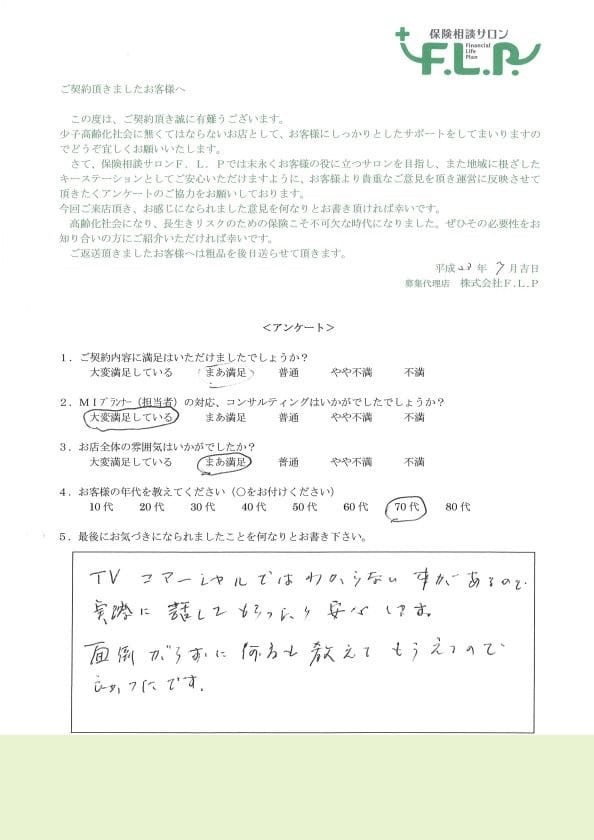 保険相談サロン
Financial
Life
Plan
F.L.P.
ご契約頂きましたお客様へ
この度は、ご契約頂き誠に有難うございます。
少子高齢化社会に無くてはならないお店として、お客様にしっかりとしたサポートをしてまいりますの
でどうぞ宜しくお願いいたします。
さて、保険相談サロンＦ．Ｌ．Ｐでは末永くお客様の役に立つサロンを目指し、また地域に根ざした
キーステーションとしてご安心いただけますように、お客様より貴重なご意見を頂き運営に反映させて
頂きたくアンケートのご協力をお願いしております。
今回ご来店頂き、お感じになられました意見を何なりとお書き頂ければ幸いです。
高齢化社会になり、長生きリスクのための保険こそ不可欠な時代になりました。ぜひその必要性をお
知り合いの方にご紹介いただければ幸いです。
ご返送頂きましたお客様へは粗品を後日送らせて頂きます。
平成28年 7月吉日
募集代理店 株式会社Ｆ.Ｌ.Ｐ
＜アンケート＞
１．ご契約内容に満足はいただけましたでしょうか？
大変満足している まあ満足 普通 やや不満 不満
２．ＭＩプランナー（担当者）の対応、コンサルティングはいかがでしたでしょうか？
大変満足している まあ満足 普通 やや不満 不満
３．お店全体の雰囲気はいかがでしたか？
大変満足している まあ満足 普通 やや不満 不満
４．お客様の年代を教えてください（○をお付けください）
10代 20代 30代 40代 50代 60代 70代 80代
５．最後にお気づきになられましたことを何なりとお書き下さい。
TVコマーシャルではわからない事があるので
実際に話してもらったら安心します。
面倒がらずに何度も教えてもらえるので
良かったです。